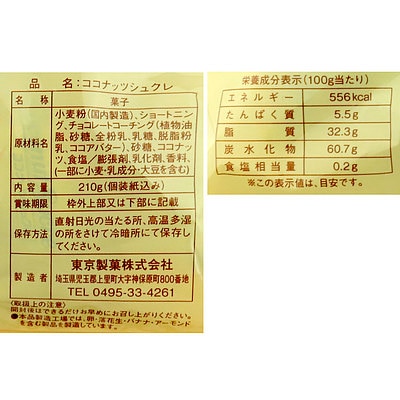 品 名:ココナッツシュクレ
名 称 菓子
原材料名 小麦粉(国内製造)、ショートニング、チョコレートコーチング(植物油脂、砂糖、全粉乳、乳糖、脱脂粉乳、ココアバター)、砂糖、ココナッツ、食塩/膨張剤、乳化剤、香料、(一部に小麦・乳成分・大豆を含む)
内 容 量 210g(個装紙込み)
賞味期限 枠外上部又は下部に記載
保存方法 直射日光の当たる所、高温多湿の所をさけて冷暗所にて保存してください。
製 造 者 東京製菓株式会社
埼玉県児玉郡上里町大字神保原町800番地
TEL 0495-33-4261
〈取扱上の注意〉
開封後はできるだけお早めにお召し上がりください。
●本品製造工場では、卵・落花生・バナナ・アーモンドを含む製品を製造しています。
栄養成分表示(100g当たり)
エネルギー 556kcal
たんぱく質 5.5g
脂 質 32.3g
炭水化物 60.7g
食塩相当量 0.2g
※この表示値は、目安です。